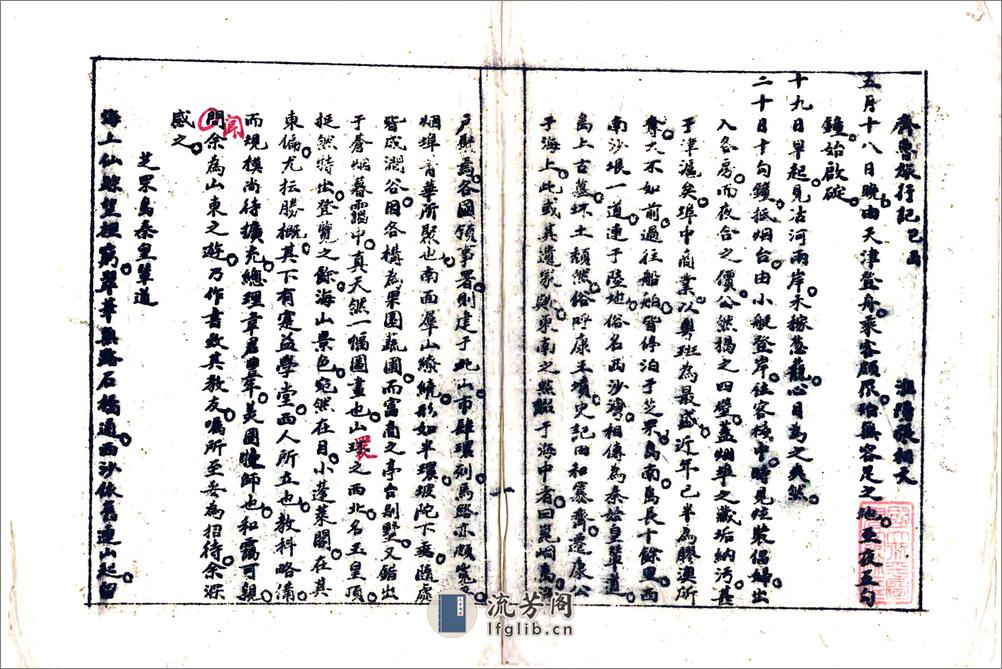 齊魯旅行記 己酉 淮陽張相文
五月十八日晚由天津登舟乘客頗眾殆無容足之地至夜五句
鐘始啟碇
十九日早起見沽河兩岸禾稼葱蘢心目為之爽然
二十日十句鐘抵烟台由小艇登岸住客棧中時見佐裝倡婦出
入各房而夜合之價公然揭之四壁蓋烟華之藏垢納污甚
于津滬矣埠中商業以輿班為最盛近年已半為膠澳所
奪大不如前過往船舶皆停泊于芝罘島南島長十餘里西
南沙堤一道連于陸地俗名西沙灣相傳為秦始皇輦道
島上古墓坏土頹然俗呼康王墳史記田和篡齊遷康公
于海上此或其遺冢與東南之點綴于海中者曰崑崗島海
戶斯為各國領事署則建于北山市肆環列馬路亦頗寬
烟埠菁華所聚也南面羣山繚繞形如半環坡陀下爽隨處
皆成澗谷因各構為果園蔬圃而富商之亭台別墅又錯出
于蒼烟暮靄中真天然一幅圖畫也山環之西北名玉皇頂
挺然特出登覽之餘海山景色宛然在目小蓬萊閣在其
東偏尤擅勝概其下有實益學堂西人所立也教科略備
而規模尚待擴充總理韋君思牟美國牧師也和藹可親
聞余為山東之遊乃作書致其教友囑所至妥為招待余深
感之
芝罘島秦皇輦道
海上仙蹤望裡窮翠華無路石橋通西沙依舊連山起留
一
環
聞
流芳閣
lfglib.cn